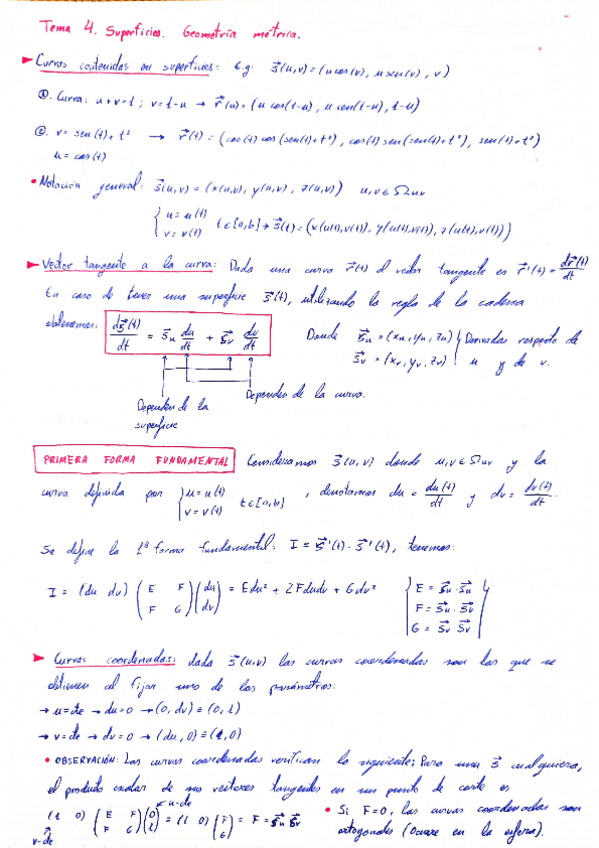 Tema 4. Superficies. Geometría métrica.
Curvas contenidas en superficies: E.g: S⃗(u,v) = (u cos(v), u sen(v), v)
①. Curva: u+v=1 ; v=1-u → r⃗(u) = (u cos(1-u), u sen(1-u), 1-u)
②. v = sen(t)+t² → r⃗(t) = (cos(t) cos(sen(t)+t²), cos(t) sen(sen(t)+t²), sen(t)+t²)
u = cos(t)
• Notación general: S⃗(u,v) = (x(u,v), y(u,v), z(u,v)) u,v ∈ Ωuv
{ u = u(t) v = v(t) t ∈ [a,b] → S⃗(t) = (x(u(t),v(t)), y(u(t),v(t)), z(u(t),v(t)))
Vector tangente a la curva: Dada una curva r⃗(t) el vector tangente es r⃗'(t) = dr⃗(t)/dt
En caso de tener una superficie S⃗(t), utilizando la regla de la cadena
obtenemos: dS⃗(t)/dt = S⃗u du/dt + S⃗v dv/dt Donde S⃗u = (xu, yu, zu) S⃗v = (xv, yv, zv) } Derivadas respecto de u y de v.
Dependen de la superficie
Dependen de la curva.
PRIMERA FORMA FUNDAMENTAL Consideramos S⃗(u,v) donde u,v ∈ Ωuv y la
curva definida por { u = u(t) v = v(t) t ∈ [a,b] , denotamos du = du(t)/dt y dv = dv(t)/dt.
Se define la 1ª forma fundamental: I = S⃗'(t) · S⃗'(t), tenemos:
I = (du dv) (E F F G) (du dv) = Edu² + 2Fdudv + Gdv² { E = S⃗u · S⃗u F = S⃗u · S⃗v G = S⃗v S⃗v }
Curvas coordenadas: dada S⃗(u,v) las curvas coordenadas son las que se
obtienen al fijar uno de los parámetros:
→ u=cte → du=0 → (0, dv) ≡ (0, 1)
→ v=cte → dv=0 → (du, 0) ≡ (1, 0)
• OBSERVACIÓN: Las curvas coordenadas verifican lo siguiente: Para una S⃗ cualquiera,
el producto escalar de sus vectores tangentes en un punto de corte es
(1 0) (E F F G) (0 1) = (1 0) (F G) = F = S⃗u S⃗v • Si F=0, las curvas coordenadas son
u-cte
v-cte
ortogonales (Ocurre en la esfera).